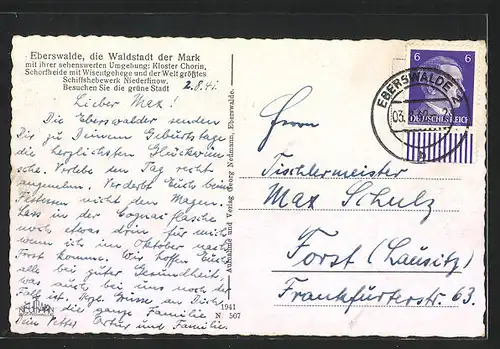 Eberswalde, die Waldstadt der Mark
mit ihrer sehenswerten Umgebung: Kloster Chorin,
Schorfheide mit Wisentgehege und der Welt größtes
Schiffshebewerk Niederfinow.
Besuchen Sie die grüne Stadt
2.8.41.
Lieber Max!
Die Eberswalder senden
Dir zu Deinem Geburtstage
die herzlichsten Glückwün-
sche. Verlebe den Tag recht
angenehm. Verderbt Euch beim
nicht den Magen.
Lass in der Cognacflasche
noch etwas drin für mich
wenn ich im Oktober nach
Forst komme. Wir hoffen Euch
alle bei guter Gesundheit,
was auch bei uns noch der
ist. Grüsse an Dich
die ganze Familie
Dein Artur und Familie.
NEDMANN
1941
N 507
Aufnahme und Verlag Georg Nedmann, Eberswalde.
6 6
DEUTSCHES REICH
EBERSWALDE 2
03.
Herrn
Tischlermeister
Max Schulz
Forst (Lausitz)
Frankfurterstr. 63.